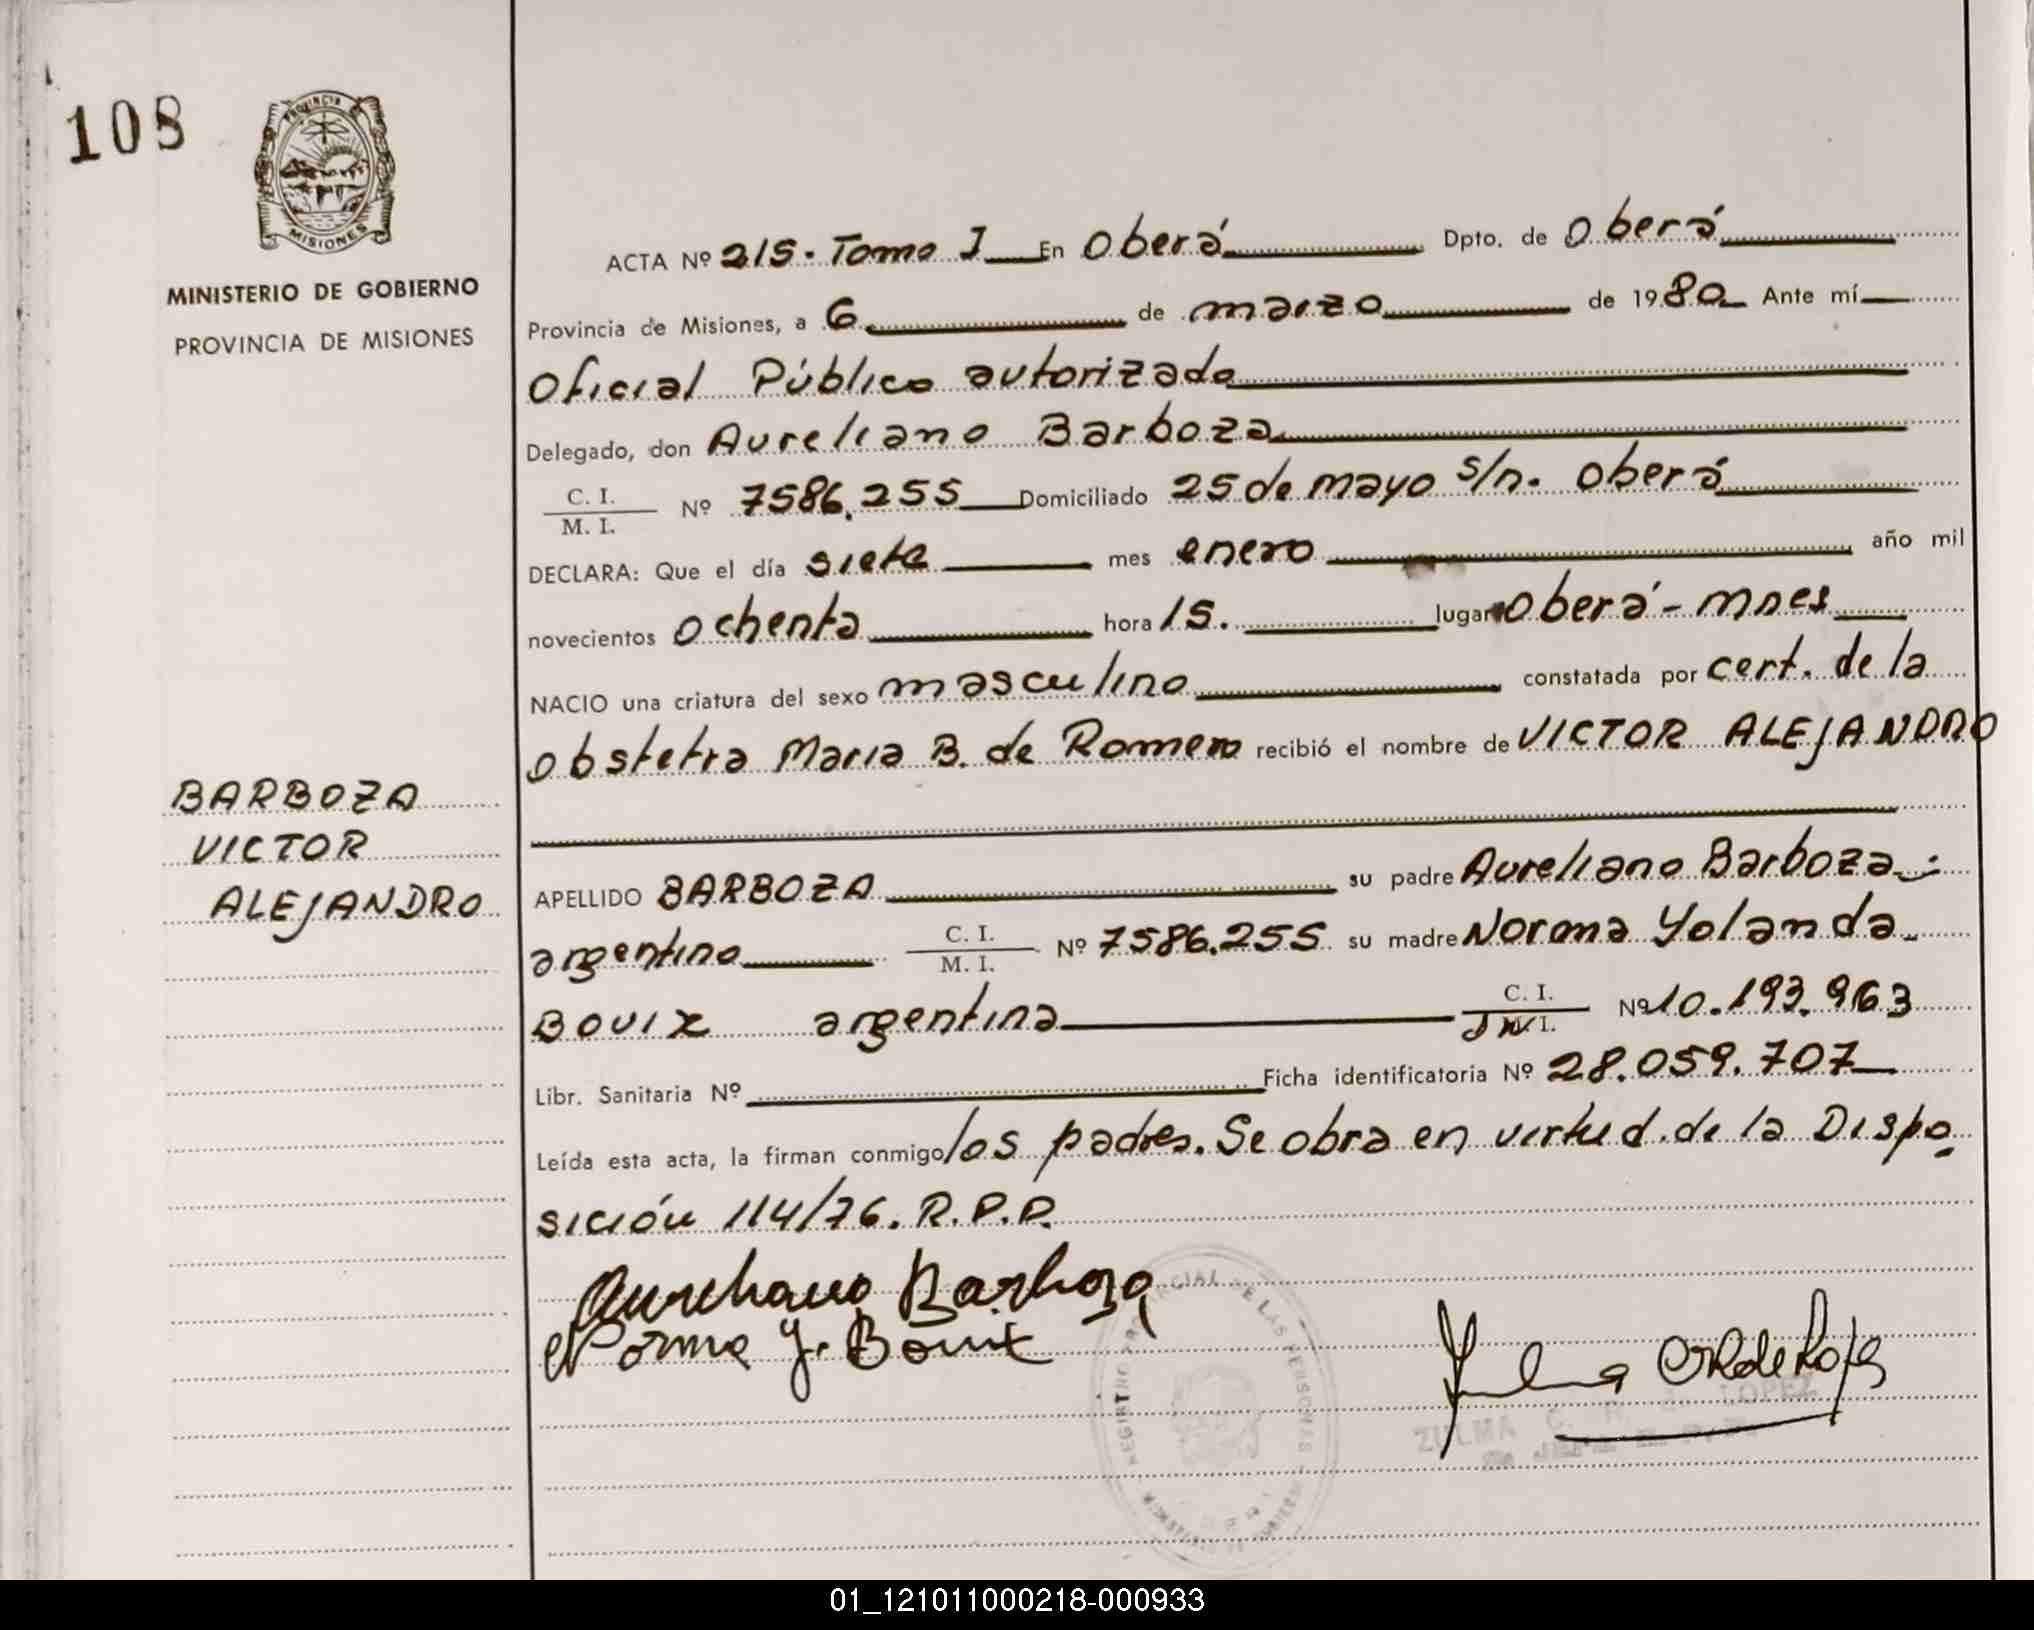 108
PROVINCIA
MISIONES
MINISTERIO DE GOBIERNO
PROVINCIA DE MISIONES
BARBOZA
VICTOR
ALEJANDRO
ACTA Nº 215. Tomo I En Oberá Dpto. de Oberá
Provincia de Misiones, a 6 de marzo de 1980 Ante mí
Oficial Público autorizado
Delegado, don Aureliano Barboza
C. I.
M. I. Nº 7586.255 Domiciliado 25 de mayo s/n. Oberá
DECLARA: Que el día siete mes enero año mil
novecientos ochenta hora 15. lugar Oberá - Mnes
NACIO una criatura del sexo masculino constatada por cert. de la
obstetra Maria B. de Romero recibió el nombre de VICTOR ALEJANDRO
APELLIDO BARBOZA su padre Aureliano Barboza
argentino C. I.
M. I. Nº 7586.255 su madre Norma Yolanda
Bouix argentina C. I.
Nº 10.193.963
Libr. Sanitaria Nº Ficha identificatoria Nº 28.059.707
Leída esta acta, la firman conmigo los padres. Se obra en virtud de la Dispo
sición 114/76. R.P.P.
Aureliano Barboza
Norma Y. Bouix
ZULMA C. R. de LOPEZ
01_121011000218-000933